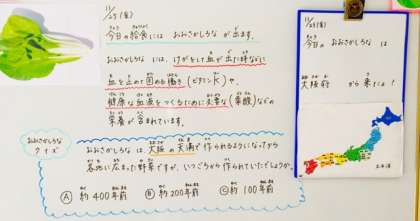 11/25(金)
今日の給食には おおさかしろな が出ます。
おおさかしろな には、けがをして血が出た時などに
血を止めて固める働き(ビタミンK)や、
健康な血液をつくるために大事な(葉酸)などの
栄養が含まれています。
おおさかしろな
クイズ
おおさかしろな は 大阪の天満で作られるようになってから
各地に広まった野菜ですが、いつごろから作られていたでしょうか。
Ⓐ 約400年前 Ⓑ 約200年前 Ⓒ 約100年前
11/25(金)
今日の おおさかしろな は
大阪府 から来たよ!